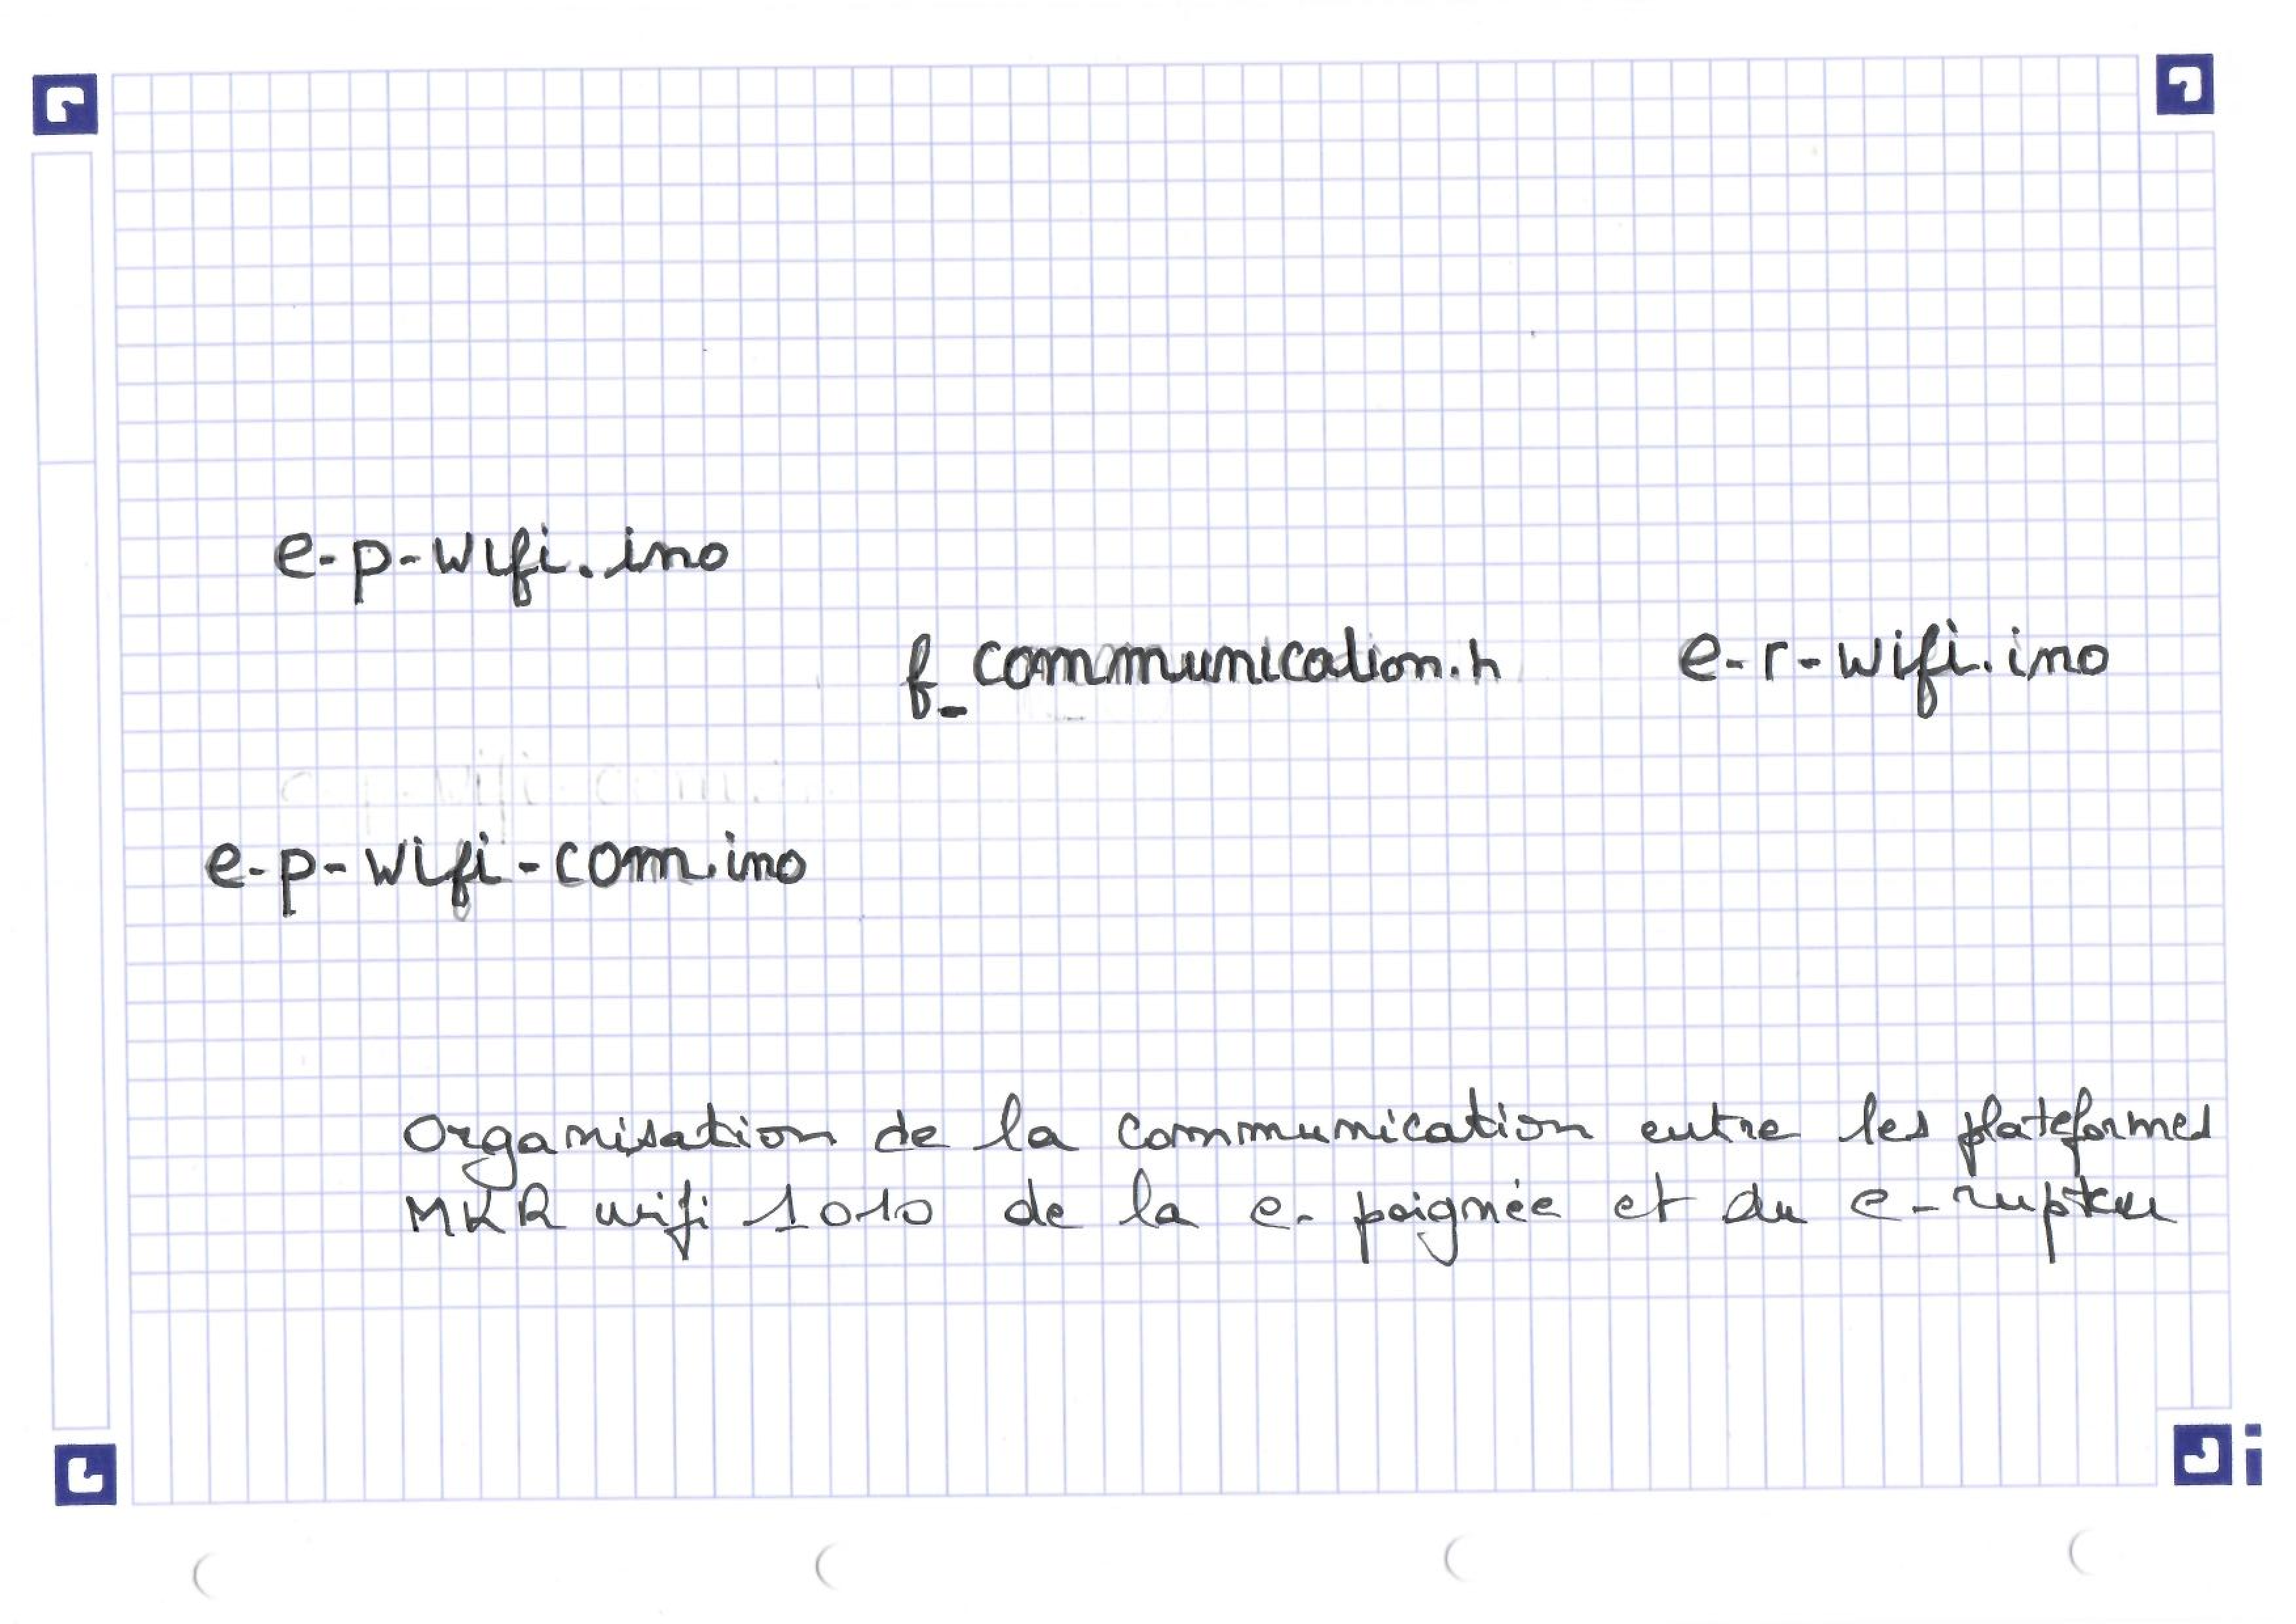 e-p-wifi.ino
f_communication.h e-r-wifi.ino
e-p-wifi-com.ino
Organisation de la communication entre les plateformes
MKR wifi 1010 de la e-poignée et du e-rupteur